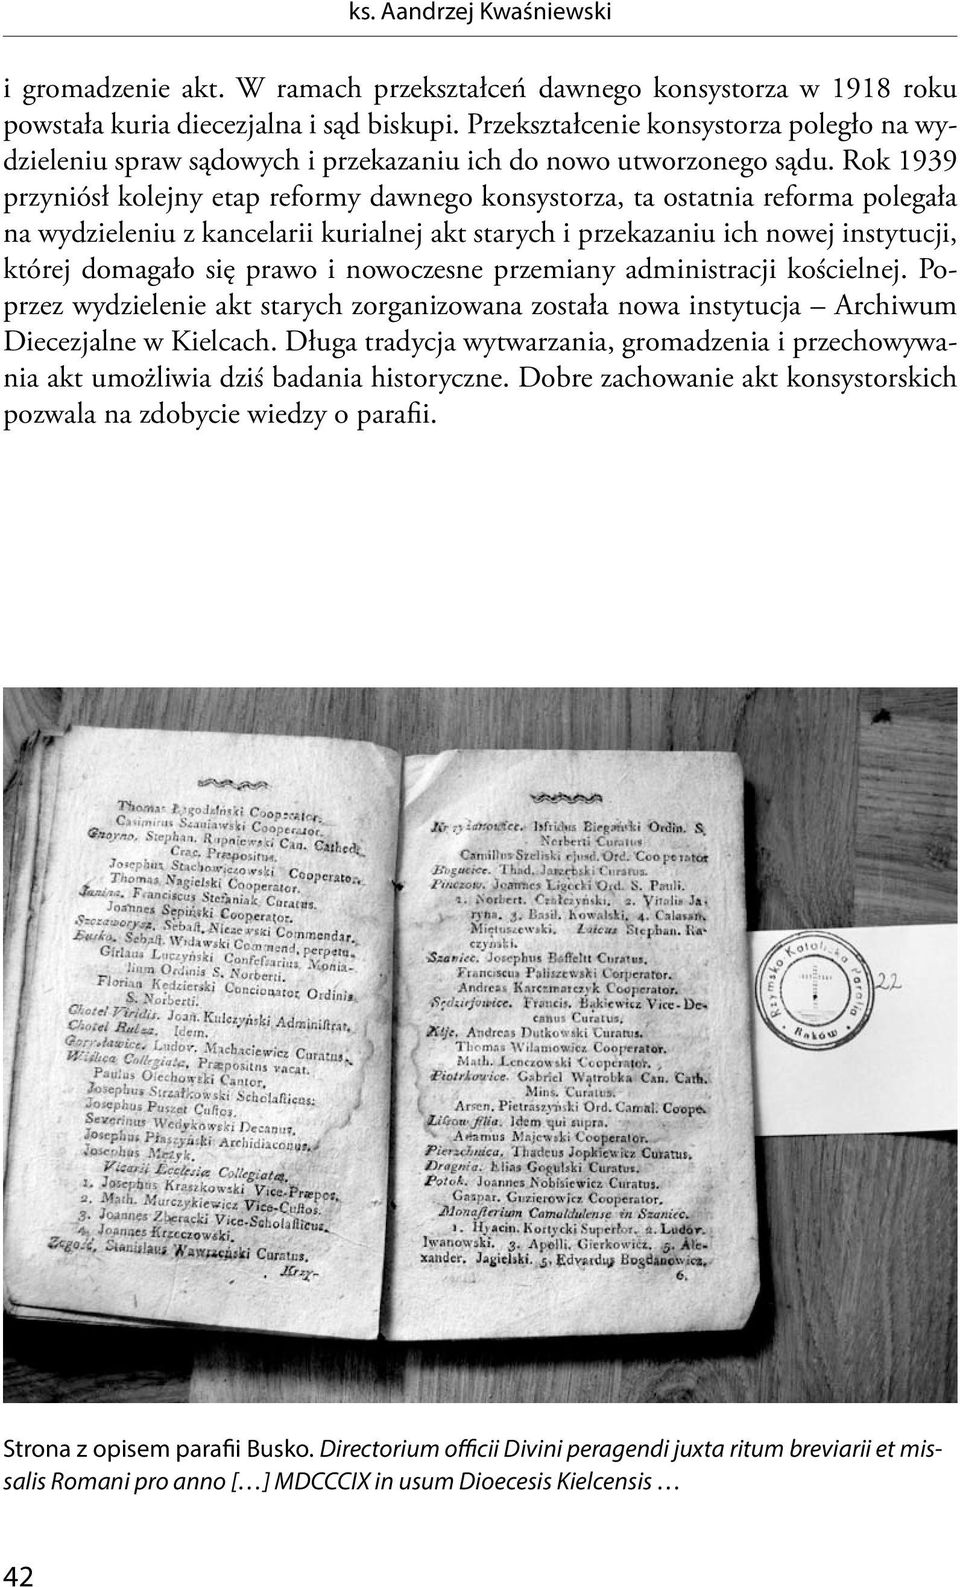 ks. Aandrzej Kwaśniewski
i gromadzenie akt. W ramach przekształceń dawnego konsystorza w 1918 roku
powstała kuria diecezjalna i sąd biskupi. Przekształcenie konsystorza poległo na wy-
dzieleniu spraw sądowych i przekazaniu ich do nowo utworzonego sądu. Rok 1939
przyniósł kolejny etap reformy dawnego konsystorza, ta ostatnia reforma polegała
na wydzieleniu z kancelarii kurialnej akt starych i przekazaniu ich nowej instytucji,
której domagało się prawo i nowoczesne przemiany administracji kościelnej. Po-
przez wydzielenie akt starych zorganizowana została nowa instytucja – Archiwum
Diecezjalne w Kielcach. Długa tradycja wytwarzania, gromadzenia i przechowywa-
nia akt umożliwia dziś badania historyczne. Dobre zachowanie akt konsystorskich
pozwala na zdobycie wiedzy o parafii.
Thomas Cooperator.
Casimirus Szaniawski Cooperator.
Gnoyno. Stephan. Rupniewski Can. Cathedr.
Crac. Præpositus.
Josephus Stachowiczowski Cooperator.
Thomas Nagielski Cooperator.
Janina. Franciscus Stefaniak Curatus.
Joannes Sepiński Cooperator.
Szczaworysz. Sebast. Niezewski Commendar.
Busko. Sebast. Widawski Commend. perpetu.
Girlaus Luczyński Confessarius Monia-
lium Ordinis S. Norberti.
Florian Kędzierski Concionator Ordinis
S. Norberti.
Chotel Viridis. Joan. Kulczyński Administrat.
Chotel Idem.
Gorysławice. Ludov. Machaciewicz Curatus.
Wislica Collegiata. Præpositus vacat.
Paulus Olechowski Cantor.
Josephus Strzałkowski Scholasticus.
Josephus Puszet Custos.
Severinus Wedykowski Decanus.
Josephus Płaszyński Archidiaconus.
Josephus Mężyk.
Vicarii Ecclesiæ Collegiatæ.
1. Josephus Kraszkowski Vice-Præpos.
2. Math. Murczykiewicz Vice-Custos.
3. Joannes Zberacki Vice-Scholasticus.
4. Joannes Krzeczowski.
Zegość. Stanislaus Wawrzeński Curatus.
Krzy-
Krzyżanowice. Isfridus Biegański Ordin. S.
Norberti Curatus
Camillus Szeliski ejusd. Ord. Cooperator
Bogucice. Thad. Jarzębski Curatus.
Pinczow. Joannes Ligęcki Ord. S. Pauli.
1. Norbert. 2. Vitalis Ja-
ryna. 3. Basil. Kowalski. 4. Calasan.
Miętuszewski. Laicus Stephan. Ra-
czynski.
Szaniec. Josephus Boffelt Curatus.
Franciscus Paliszewski Corperator.
Andreas Karczmarczyk Cooperator.
Sędziejowice. Francis. Bąkiewicz Vice-De-
canus Curatus.
Kije. Andreas Dutkowski Curatus.
Thomas Wilamowicz Cooperator.
Math. Lenczowski Cooperator.
Piotrkowice. Gabriel Wątrobka Can. Cath.
Mins. Curatus.
Arsen. Pietraszyński Ord. Camal. Coope.
Lisow filia. Idem qui supra.
Adamus Majewski Cooperator.
Pierzchnica. Thadeus Jopkiewicz Curatus.
Dragnia. Elias Gogulski Curatus.
Potok. Joannes Nobisiewicz Curatus.
Gaspar. Guzierowicz Cooperator.
Monasterium Camaldulense in Szaniec.
1. Hyacin. Kortycki Superior. 2. Ludov.
Iwanowski. 3. Apolli. Gierkowicz. 5. Ale-
xander. Jagielski. 5. Edvardus Bogdanowicz.
6.
Rzymsko Katolicka Parafia
Raków
22
Strona z opisem parafii Busko. Directorium officii Divini peragendi juxta ritum breviarii et mis-
salis Romani pro anno […] MDCCCIX in usum Dioecesis Kielcensis …
42